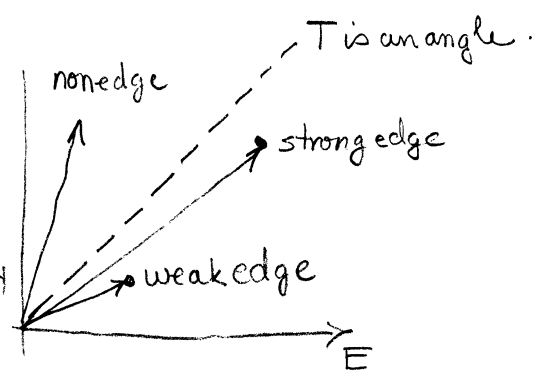 T is an angle.
nonedge
strong edge
weak edge
E